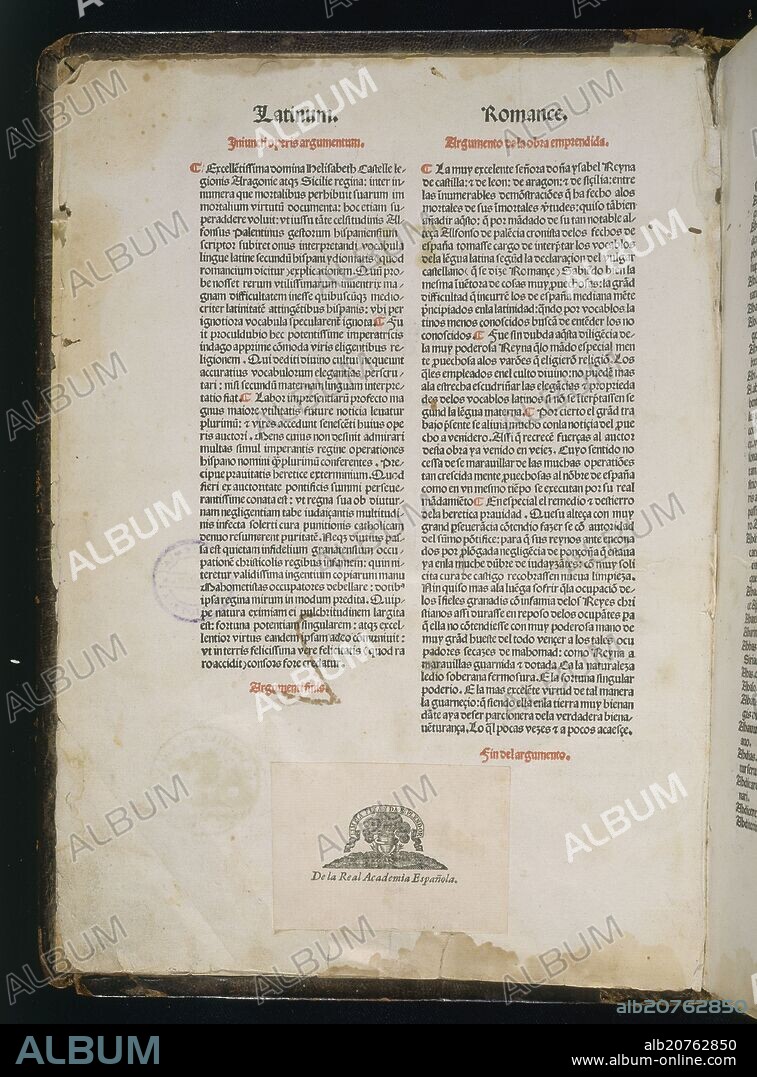 Latinum.
Iniuncti operis argumentum.
Excellētissima domina Helisabeth Castelle le-
gionis Aragonie atqꝫ Sicilie regina: inter in-
numera que mortalibus perhibuit suarum im
mortalium virtutū documenta: hoc etiam su-
peraddere voluit: vt iussu tāte celsitudinis Al-
fonsus Palentinus gestorum hispaniensium
scriptor subiret onus interpretandi vocabula
lingue latine secundū hispani ydiomatis: quod
romancium dicitur explicationem. Qui pro-
be nosset rerum vtilissimarum inuentrix ma-
gnam difficultatem inesse quibuscūqꝫ medio-
criter latinitatē attingētibus hispanis: vbi per
ignotiora vocabula specularent ignota. Fu
it proculdubio hec potentissime imperatricis
indago apprime cōmoda viris eligentibus re-
ligionem. Qui dediti diuino cultui nequeunt
accuratius vocabulorum elegantias perscru-
tari: nisi secundū maternā linguam interpre-
tatio fiat. Labor impresentiarū profecto ma
gnus maiore vtilitatis future noticia leuatur
plurimū: & vires accedunt senescēti huius ope
ris auctori. Mens cuius non desinit admirari
multas simul imperantis regine operationes
hispano nomini qꝫplurimū conferentes. Pre-
cipue prauitatis heretice exterminium. Quod
fieri ex auctoritate pontificis summi perseue-
rantissime conata est: vt regna sua ob diutur-
nam negligentiam tabe iudaizantis multitudi
nis infecta solerti cura punitionis catholicam
denuo resumerent puritatē. Neqꝫ diutius pas-
sa est quietam infidelium granatensium occu-
pationē christicolis regibus infamem: quin ni
teretur validissima ingentium copiarum manu
Mahometistas occupatores debellare: dotibꝰ
ipsa regina mirum in modum predita. Quip-
pe natura eximiam ei pulchritudinem largita
est: fortuna potentiam singularem: atqꝫ excel-
lentior virtus eandem ipsam adeo cōmuniit:
vt interris felicissima vere felicitatis (quod ra
ro accidit) consors fore credatur.
Argumenti finis.
Romance.
Argumento de la obra emprendida.
La muy excelente señora doña ysabel Reyna
de castilla: & de leon: de aragon: & de siçilia: entre
las innumerables demostraciōes q̄ ha fecho alos
mortales de sus īmortales v̄tudes: quiso tābien
añadir aq̄sto: q̄ por mādado de su tan notable al-
teça Alfonso de palēcia cronista delos fechos de
españa tomasse cargo de interp̄tar los vocablos
dela lēgua latina segūd la declaraçion del vulgar
castellano: q̄ se dize Romançe. Sabiēdo bien la
mesma inuētora de cosas muy puechosas: la grād
difficultad q̄ incurrē los de españa mediana mēte
p̄ncipiados enla latinidad: q̄ndo por vocablos la
tinos menos conoscidos buscā de entēder los no
conoscidos. Fue sin dubda aq̄sta diligēcia de-
la muy poderosa Reyna q̄lo mādo especial men
te puechosa alos varōes q̄ eligierō religiō. Los
q̄les empleados enel culto diuino: no podrē mas
ala estrecha escudriñar las elegācias & proprieda
des delos vocablos latinos sino se īterpretassen se
gūnd la lēgua materna. Por cierto el grād tra
bajo p̄sente se aliuia mucho conla noticia del pue
cho a venidero. Assi q̄ recrecē fuerças al auctor
desta obra ya venido en veiez. Cuyo sentido no
cessa de se marauillar de las muchas operatiōes
tan crescida mente puechosas al nōbre de españa
como en vn mesmo tiēpo se executan por su real
mādamiēto. En especial el remedio & destierro
dela heretica prauidad. Que su alteça con muy
grand pseuerācia cōtendio fazer se cō autoridad
del sūmo pōtifice: para q̄ sus reynos ante encona
dos por plōgada negligēcia de ponçoña q̄ estaua
ya enla muchedūbre de iudayzātes: cō muy soli
cita cura de castigo recobrassen nueua limpieza.
Nin quiso mas ala luēga sofrir q̄la ocupació de-
los īfieles granadis cō infamia delos Reyes chri
stianos assi durasse en reposo delos ocupātes pa
q̄ ella no cōtendiesse con muy poderosa mano de
muy grād hueste del todo vençer a los tales ocu
padores secazes de mahomad: como Reyna a
marauillas guarnida & dotada. Ca la naturaleza
ledio soberana fermosura. E la fortuna singular
poderio. E la mas excelēte virtud de tal manera
la guarneçio: q̄ siendo ella enla tierra muy bienan
dāte aya de ser parcionera dela verdadera biena-
uēturança. Lo q̄l pocas vezes & a pocos acaesçe.
Fin del argumento.
LIMPIA, FIJA Y DA ESPLENDOR
De la Real Academia Española.
alb20762850
ALBUM
alb20762850
www.album-online.com